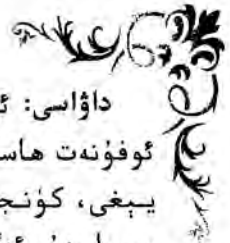 داۋاسى: ئ
ئوفۇنەت ھاس
يېغى، كۈنج